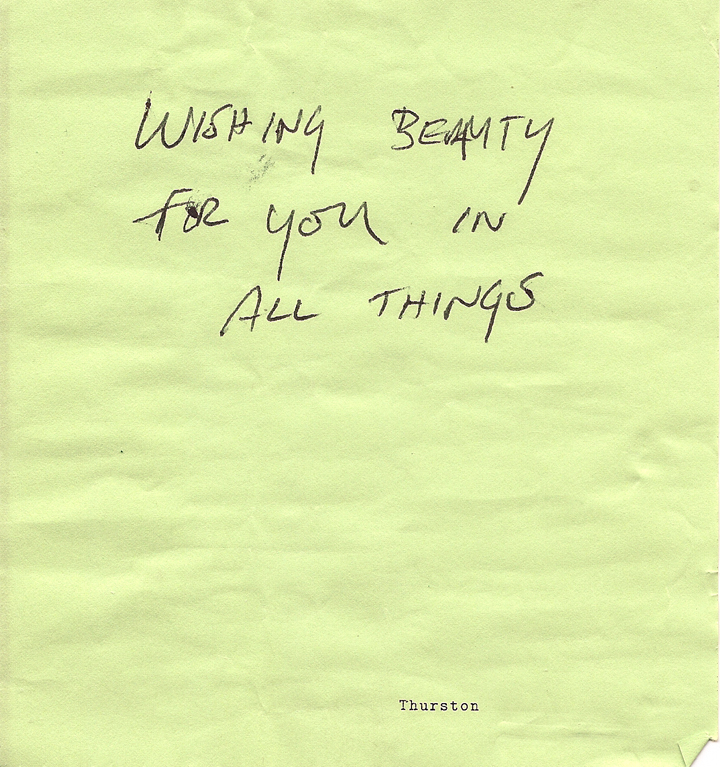 WISHING BEAUTY
FOR YOU IN
ALL THINGS
Thurston